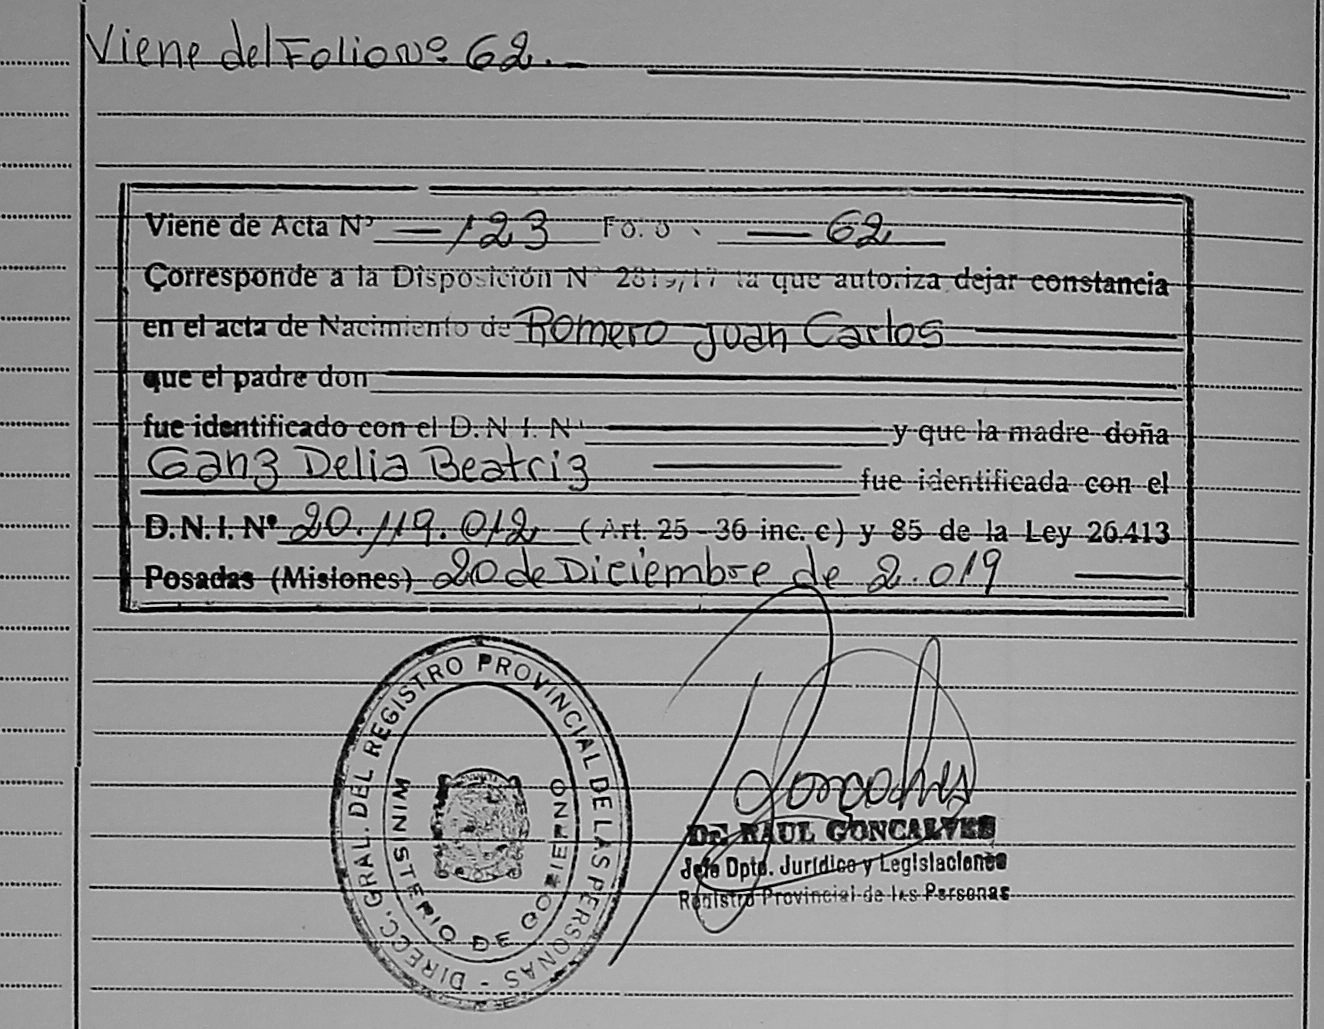 Viene del Folio Nº 62.
Viene de Acta Nº 123 Folio 62
Corresponde a la Disposición Nº 2819/17 la que autoriza dejar constancia
en el acta de Nacimiento de Romero Juan Carlos
que el padre don
fue identificado con el D.N.I. Nº y que la madre doña
Ganz Delia Beatriz fue identificada con el
D.N.I. Nº 20.119.012 (Art. 25 - 36 inc. c) y 85 de la Ley 26.413
Posadas (Misiones) 20 de Diciembre de 2.019
DIRECC. GRAL. DEL REGISTRO PROVINCIAL DE LAS PERSONAS -
MINISTERIO DE GOBIERNO
Dr. RAUL GONCALVES
Jefe Dpto. Jurídico y Legislaciones
Registro Provincial de las Personas